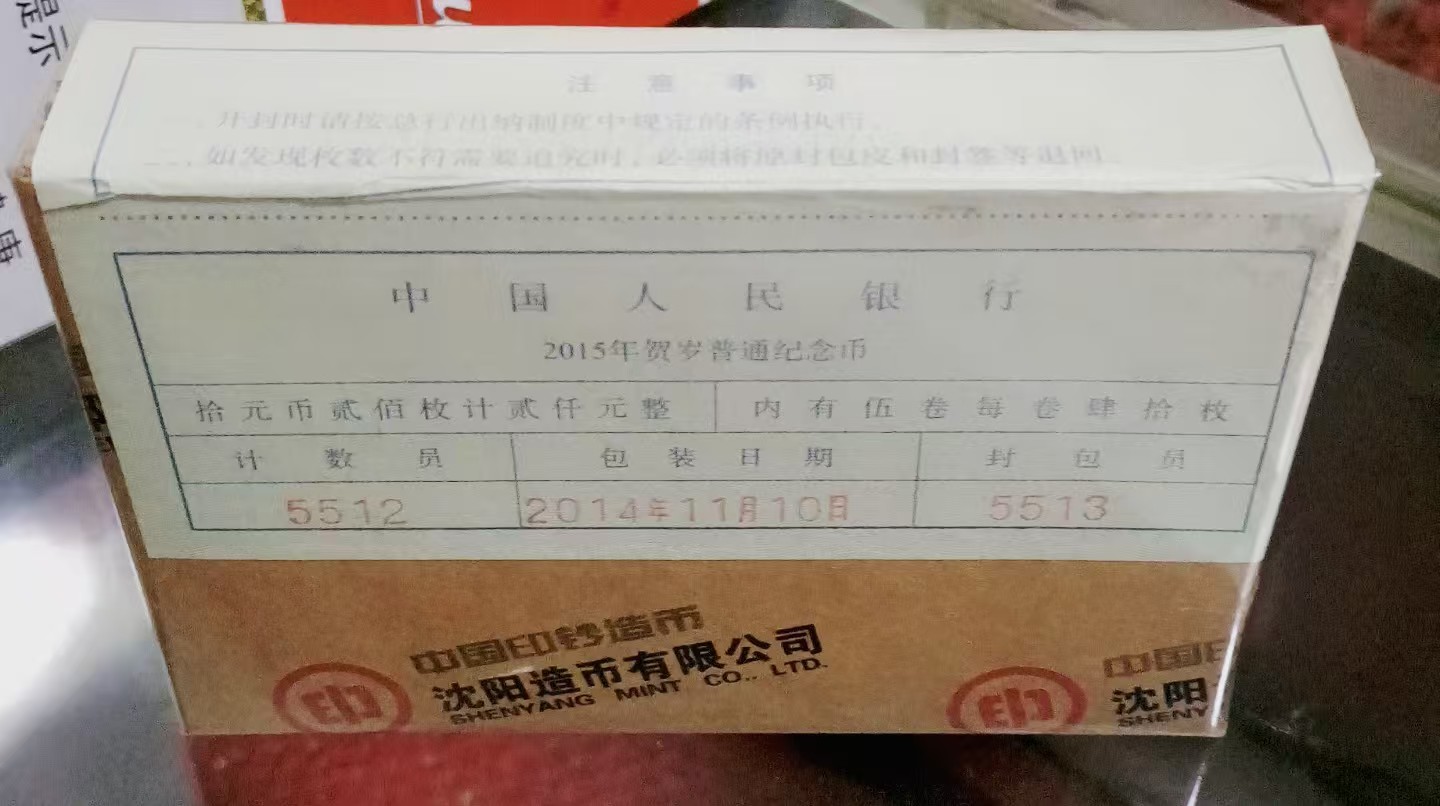 提示
注意事项
一、开封时请按总行出纳制度中规定的条例执行。
二、如发现枚数不符需要追究时，必须将原封包皮和封签等退回。
康
中国人民银行
2015年贺岁普通纪念币
拾元币贰佰枚计贰仟元整 内有伍卷每卷肆拾枚
计数员 包装日期 封包员
5512 2014年11月10日 5513
中国印钞造币
沈阳造币有限公司
SHENYANG MINT CO., LTD.
中国印
沈阳
SHENY